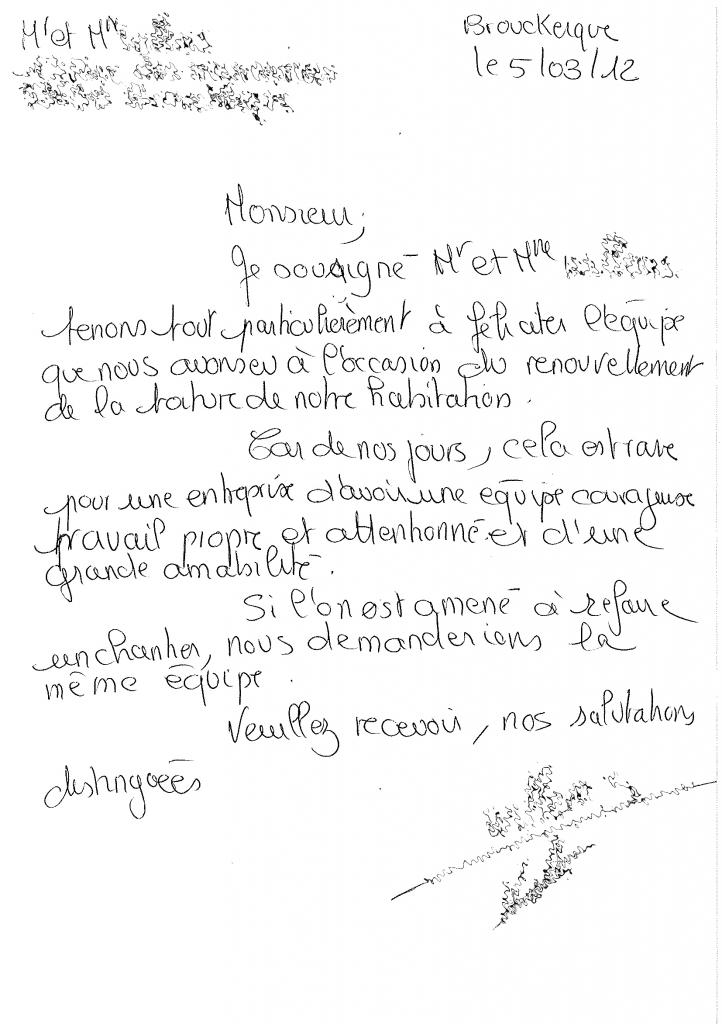 Mr et Mme
Brouckerque
le 5/03/12
Monsieur,
Je soussigné Mr et Mme
tenons tout particulièrement à féliciter l'équipe
que nous avons eu à l'occasion du renouvellement
de la toiture de notre habitation.
Car de nos jours, cela est rare
pour une entreprise d'avoir une équipe courageuse
travail propre et attentionné et d'une
grande amabilité.
Si l'on est amené à refaire
un chantier, nous demanderions la
même équipe.
Veuillez recevoir, nos salutations
distinguées